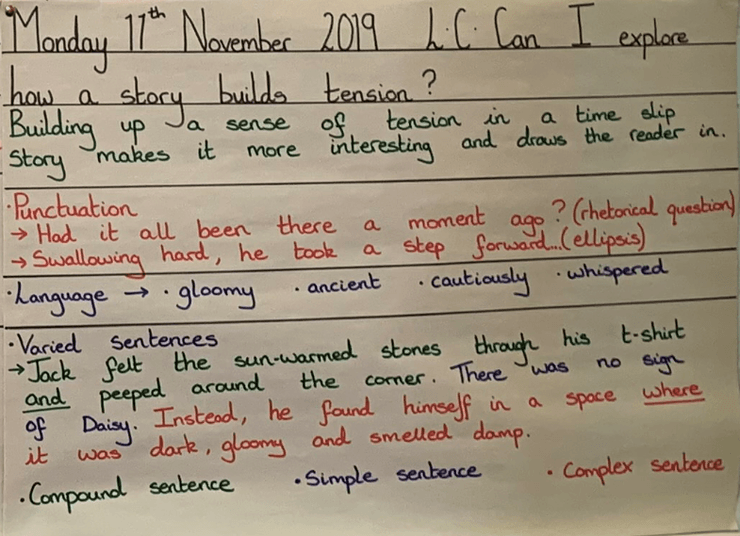 Monday 11th November 2019 L.C. Can I explore
how a story builds tension?
Building up a sense of tension in a time slip
story makes it more interesting and draws the reader in.
·Punctuation
→ Had it all been there a moment ago? (rhetorical question)
→ Swallowing hard, he took a step forward...(ellipsis)
·Language → ·gloomy ·ancient ·cautiously ·whispered
·Varied sentences
→Jack felt the sun-warmed stones through his t-shirt
and peeped around the corner. There was no sign
of Daisy. Instead, he found himself in a space where
it was dark, gloomy and smelled damp.
·Compound sentence ·Simple sentence ·Complex sentence